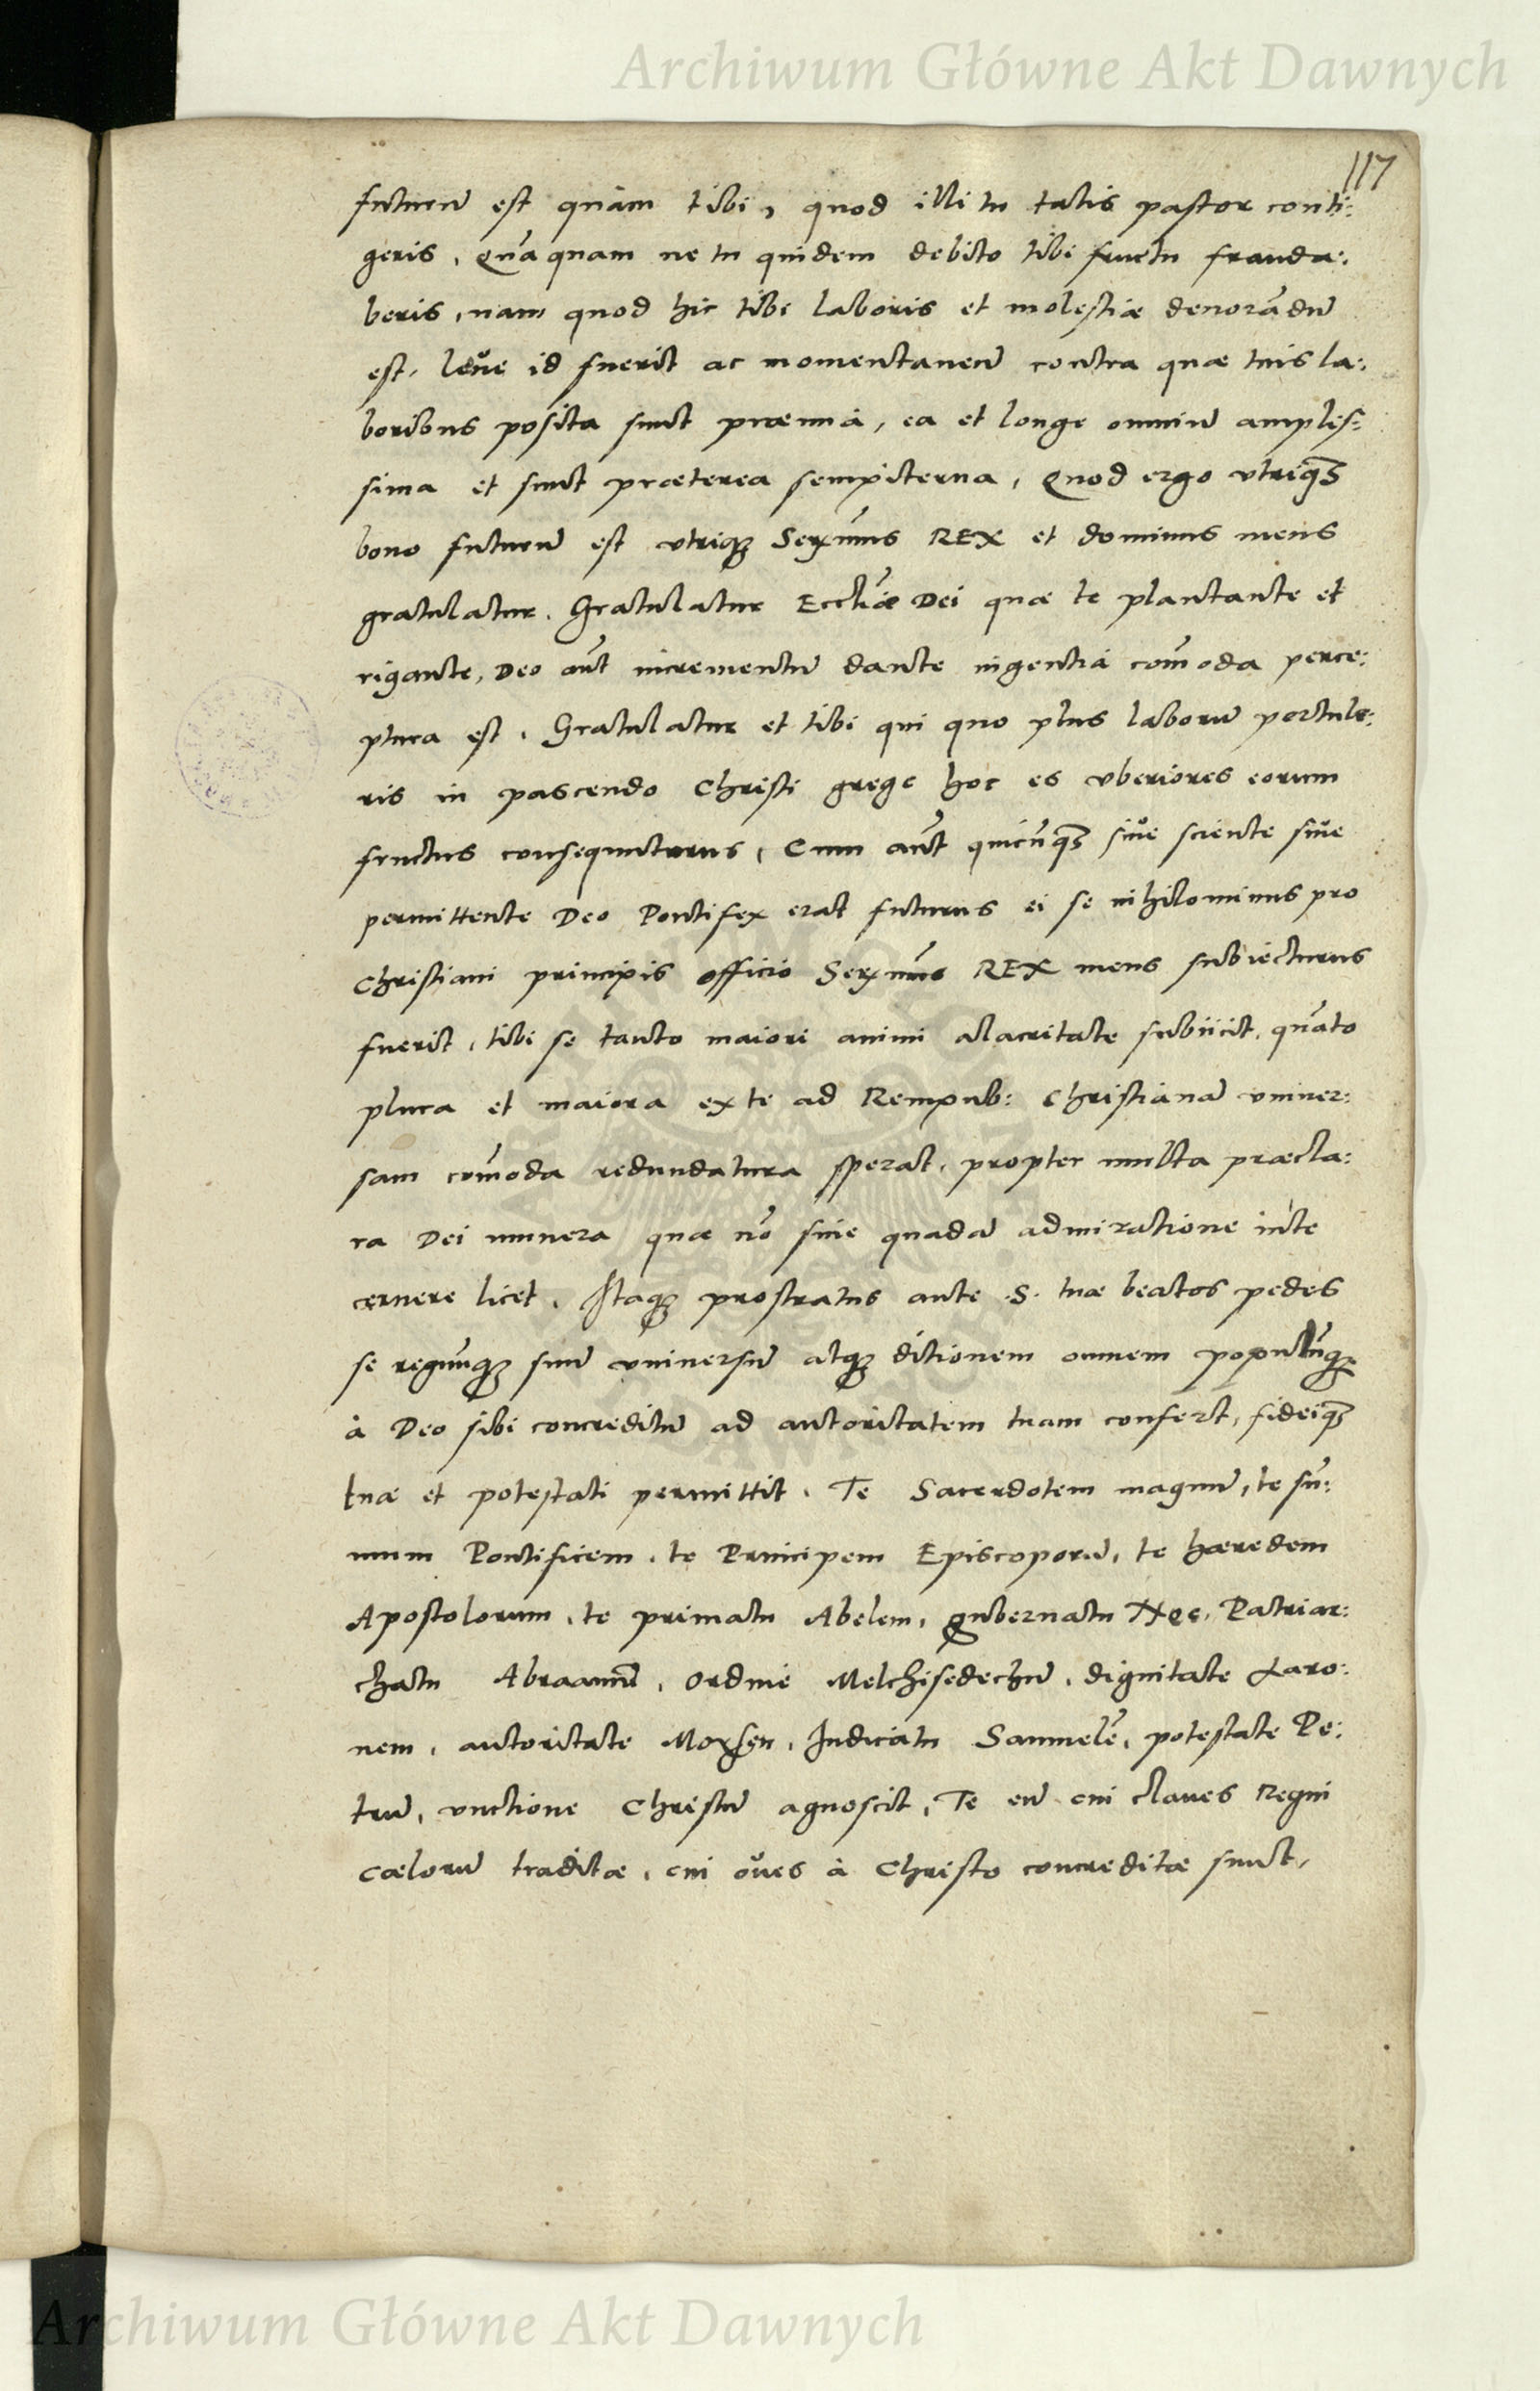 Archiwum Główne Akt Dawnych
117
futurũ est quàm tibi, quod illi tu talis pastor conti:
geris, Quãquam ne tu quidem debito tibi fructu frauda:
beris, nam quod hic tibi laboris et molestiæ deuorãdũ
est, leue id fuerit ac momentaneũ contra quæ tuis la:
boribus posita sunt præmia, ea et longe omniũ amplis:
sima et sunt præterea sempiterna, Quod ergo vtriusqꝫ
bono futurũ est vtriqꝫ Serx̃mus REX et dominus meus
gratulatur. Gratulatur Eccliæ̃ Dei quæ te plantante et
rigante, Deo aũt incrementũ dante ingentia com̃oda perce:
ptura est. Gratulatur et tibi qui quo plus laborũ pertule:
ris in pascendo Christi grege hoc es vberiores eorum
fructus consequuturus, Cum aũt quicũqꝫ siue sciente siue
permittente Deo Pontifex erat futurus ei se nihilominus pro
Christiani principis officio Serx̃mus REX meus subiecturus
fuerit, tibi se tanto maiori animi alacritate subiicit, quãto
plura et maiora ex te ad Rempub: Christianã vniuer:
sam com̃oda redundatura sperat, propter multa præcla:
ra Dei munera quæ nõ sine quadã admiratione in te
cernere licet. Itaqꝫ prostratus ante .S. tuæ beatos pedes
se regnũqꝫ suũ vniuersũ atqꝫ ditionem omnem populũqꝫ
à Deo sibi concreditũ ad autoritatem tuam confert, fideiqꝫ
tuæ et potestati permittit. Te Sacerdotem magnũ, te sũ:
mum Pontificem, te Principem Episcoporũ, te hæredem
Apostolorum, te primatu Abelem, gubernatu Noe, Patriar:
chatu Abraamũ, ordine Melchisedechũ, dignitate Aaro:
nem, autoritate Moysen, Iudicatu Samuelẽ, potestate Pe:
trũ, vnctione Christũ agnoscit, Te eũ cui claues Regni
cælorũ traditæ, cui oues à Christo concreditæ sunt,
Archiwum Główne Akt Dawnych